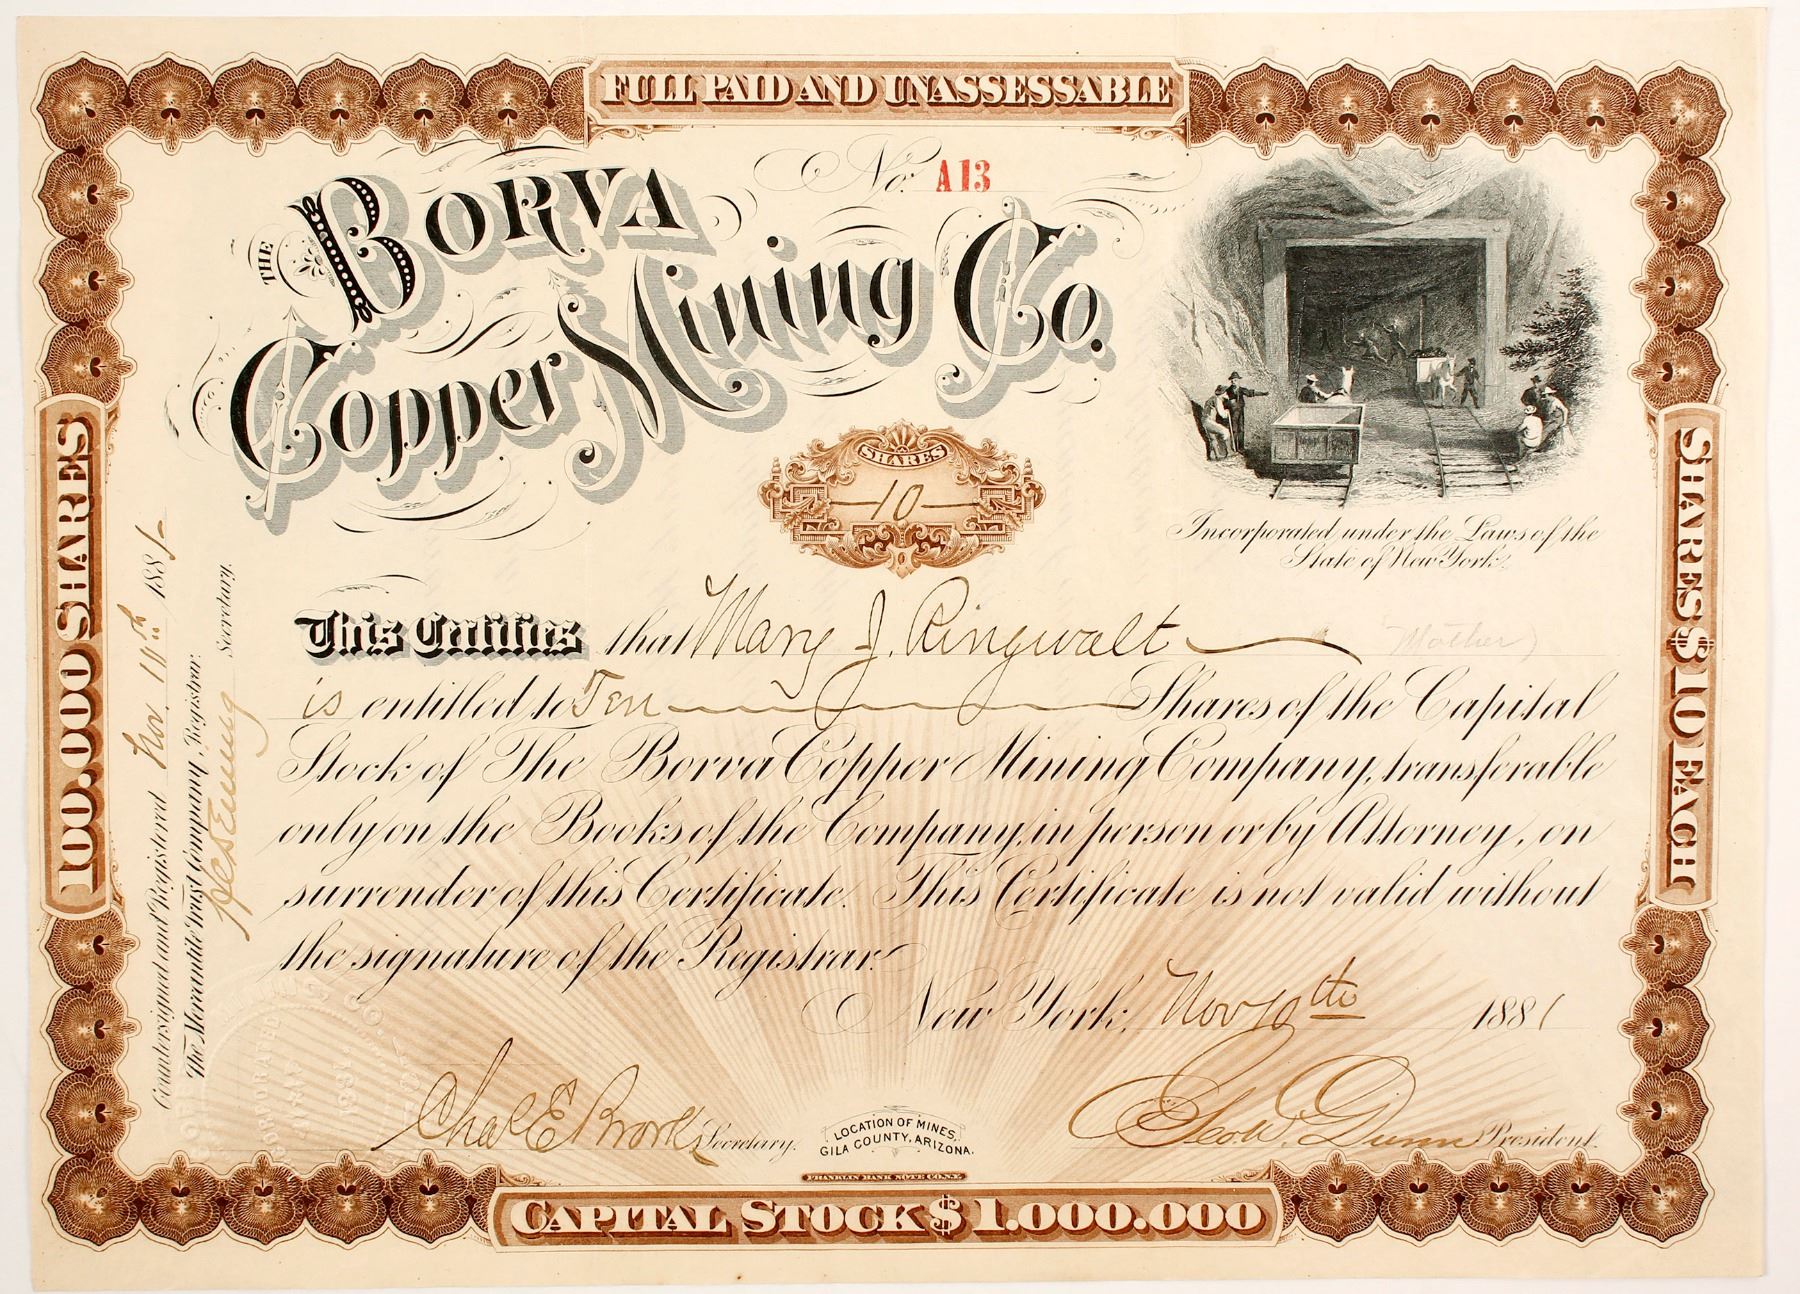 FULL PAID AND UNASSESSABLE
No. A13
THE BORVA
Copper Mining Co.
SHARES
10
Incorporated under the Laws of the
State of New York.
100.000 SHARES
SHARES $10 EACH
This Certifies that Mary J. Ringwalt (Mother)
is entitled to Ten Shares of the Capital
Stock of The Borva Copper Mining Company, transferable
only on the Books of the Company, in person or by Attorney, on
surrender of this Certificate. This Certificate is not valid without
the signature of the Registrar.
New York, Nov 10th 1881
Chas E Brooks Secretary.
Scott Dunn President.
LOCATION OF MINES,
GILA COUNTY, ARIZONA.
FRANKLIN BANK NOTE CO. N.Y.
CAPITAL STOCK $1.000.000
Countersigned and Registered Nov. 10th 1881
The Mercantile Trust Company, Registrar.
Secretary.
INCORPORATED
1881